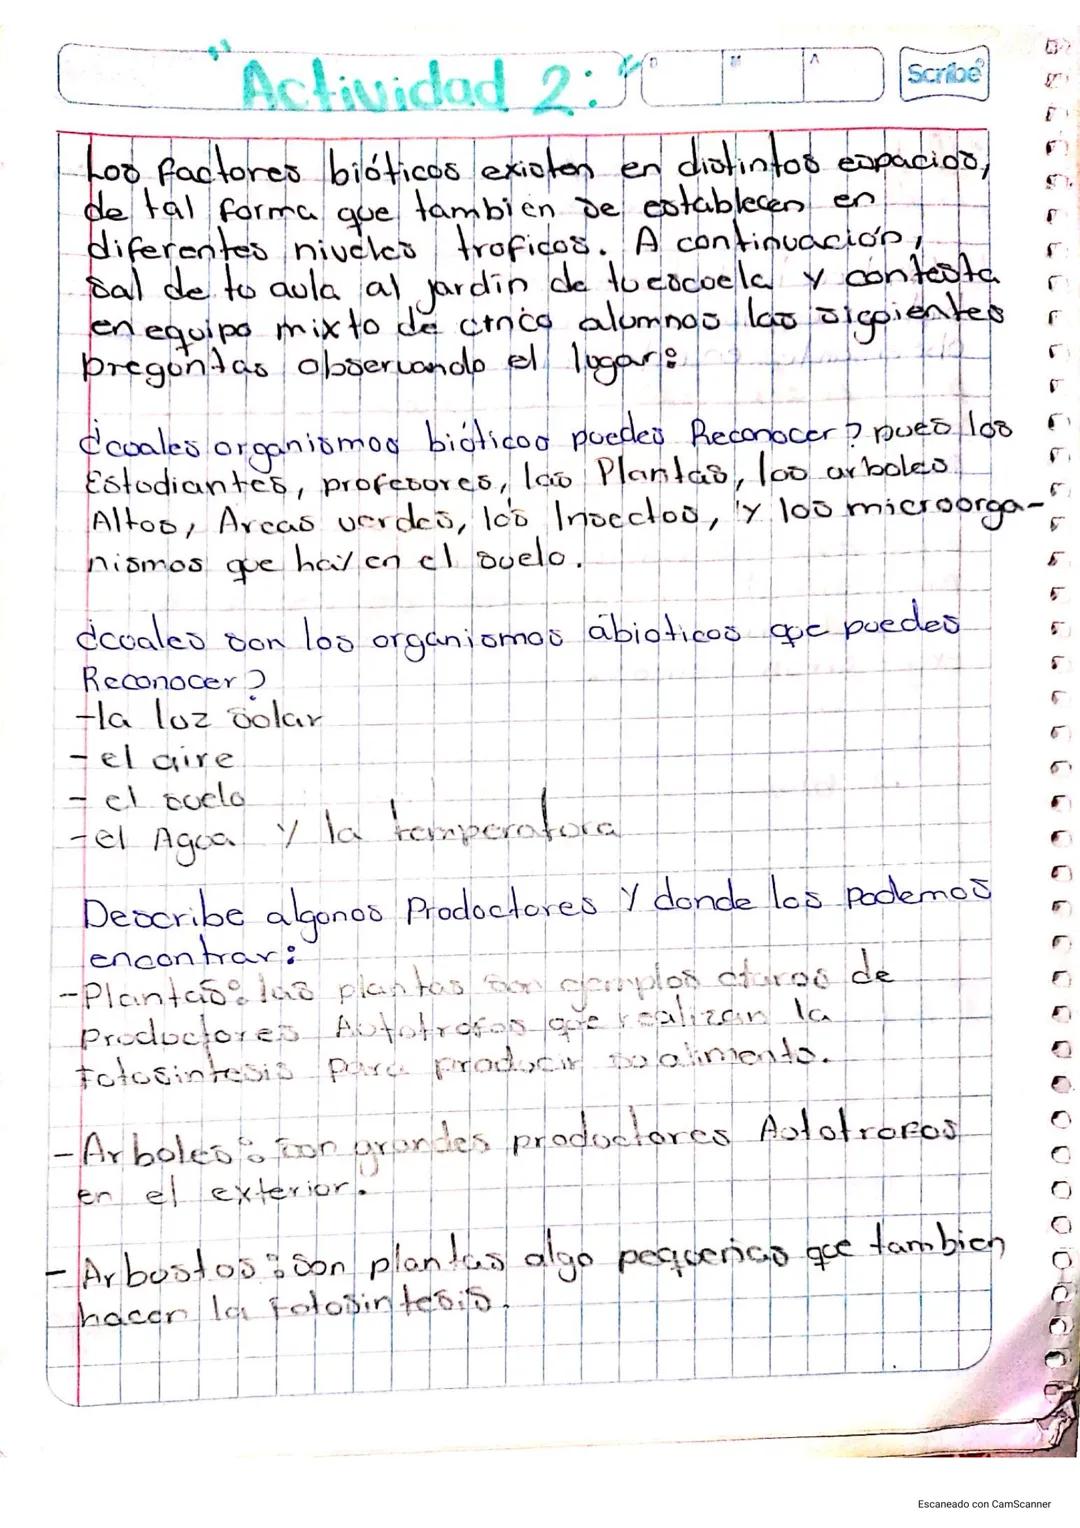 "Actividad 2:"
D M A
Scribe
Los factores bióticos existen en distintos espacios,
de tal forma que tambien se establecen en
diferentes niveles troficos. A continuación,
sal de tu aula al jardín de tu escuela y contesta
en equipo mixto de cinco alumnos las siguientes
preguntas observando el lugar:
¿cuales organismos bióticos puedes Reconocer? pues los
Estudiantes, profesores, las Plantas, los arboles
Altos, Areas verdes, los Insectos, y los microorga-
nismos que hay en el suelo.
¿cuales son los organismos abioticos que puedes
Reconocer?
-la luz solar
- el aire
- el suelo
-el Agua y la temperatura
Describe algunos Productores y donde los podemos
encontrar:
-Plantas: las plantas son ejemplos claros de
Productores Autotrofos que realizan la
Fotosintesis para producir su alimento.
-Arboles: son grandes productores Autotrofos
en el exterior.
-Arbustos: son plantas algo pequeñas que tambien
hacen la Fotosintesis.
Escaneado con CamScanner